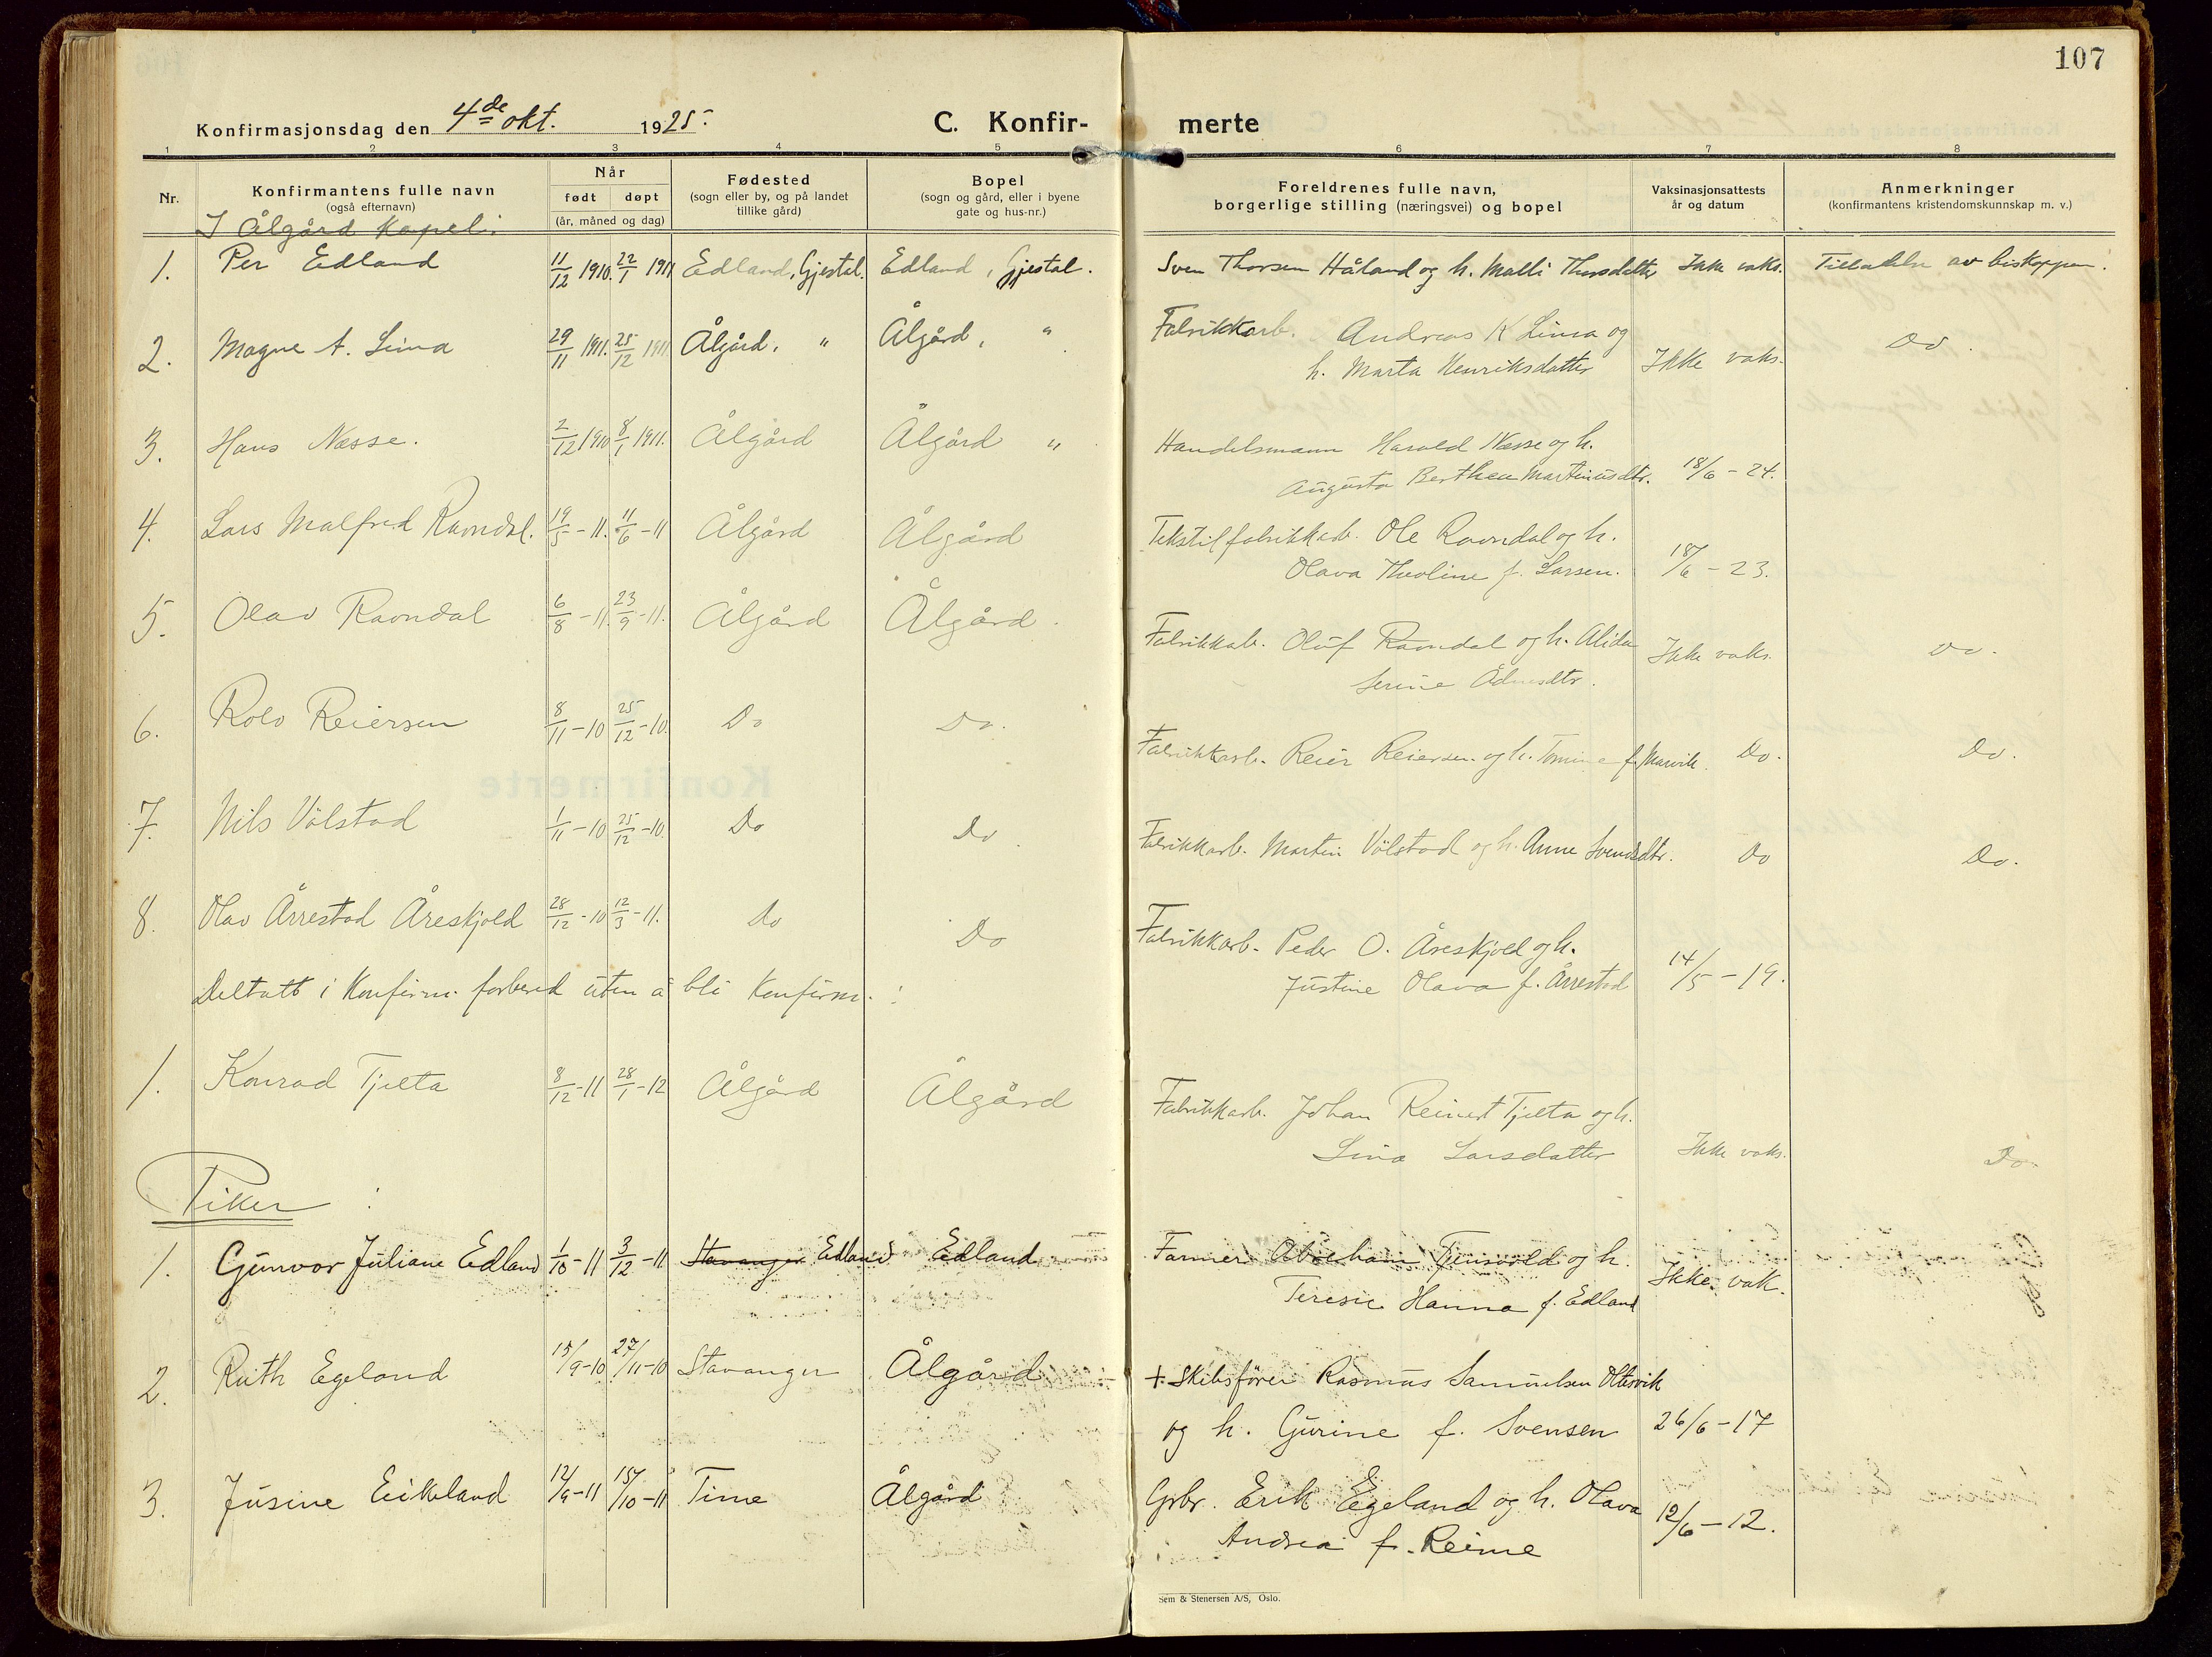 107
Konfirmasjonsdag den 4de okt. 1925. C. Konfir- merte
1 2 3 4 5 6 7 8
Nr. Konfirmantens fulle navn (også efternavn) Når født døpt (år, måned og dag) Fødested (sogn eller by, og på landet tillike gård) Bopel (sogn og gård, eller i byene gate og hus-nr.) Foreldrenes fulle navn, borgerlige stilling (næringsvei) og bopel Vaksinasjonsattests år og datum Anmerkninger (konfirmantens kristendomskunnskap m. v.)
I Ålgård Kapel:
1. Per Edland 11/12 1910. 22/1 1911 Edland, Gjestal. Edland, Gjestal. Sven Thorsen Håland og h. Malli Thorsdatter Ikke vaks. Tilladelse av biskoppen.
2. Magne A. Lima 29/11 1911. 25/12 1911 Ålgård, " Ålgård, " Fabrikkarb. Andreas K Lima og
h. Marta Henriksdatter Ikke vaks. Do.
3. Hans Næsse. 2/12 1910 8/1 1911. Ålgård Ålgård " Handelsmann Harald Næsse og h.
Augusta Berthea Martinusdtr. 18/6 - 24.
4. Lars Malfred Ravndal. 19/5 - 11. 11/6 - 11 Ålgård Ålgård Tekstilfabrikkarb. Ole Ravndal og h.
Olava Theoline f. Larsen. 18/6 - 23.
5. Olav Ravndal 6/8 - 11. 23/9 - 11. Ålgård Ålgård. Fabrikkarb. Oluf Ravndal og h. Alida
Serine Ådnesdtr. Ikke vaks. Do.
6. Rolv Reiersen 8/11 - 10 25/12 - 10. Do Do. Fabrikkarb. Reier Reiersen og h. Tomine f. Marvik. Do. Do.
7. Nils Vålstad 1/11 - 10 25/12 - 10. Do Do. Fabrikkarb. Martin Vålstad og h. Anne Svendsdtr. Do Do.
8. Olav Årrestad Åreskjold 28/12 - 10 12/3 - 11. Do Do Fabrikkarb. Peder O. Åreskjold og h.
Justine Olava f. Årrestad 14/5 - 19.
Deltatt i Konfirm. forbered uten å bli Konfirm. :
1. Konrad Tjelta 8/12 - 11 28/1 - 12 Ålgård Ålgård Fabrikkarb. Johan Reinert Tjelta og h.
Lina Larsdatter Ikke vaks. Do.
Piker :
1. Gunvor Juliane Edland 1/10 - 11 3/12 - 11 Stavanger Edland Edland Farmer Abraham Tjensvold og h.
Teresie Hanna f. Edland Ikke vak.
2. Ruth Egeland 15/9 - 10 27/11 - 10 Stavanger Ålgård + Skibsfører Rasmus Samuelsen Oltesvik
og h. Gurine f. Svensen 26/6 - 17
3. Jusine Eikeland 12/9 - 11 15/10 - 11 Time Ålgård Grbr. Erik Egeland og h. Olava
Andrea f. Reime 12/6 - 12.
Sem & Stenersen A/S, Oslo.